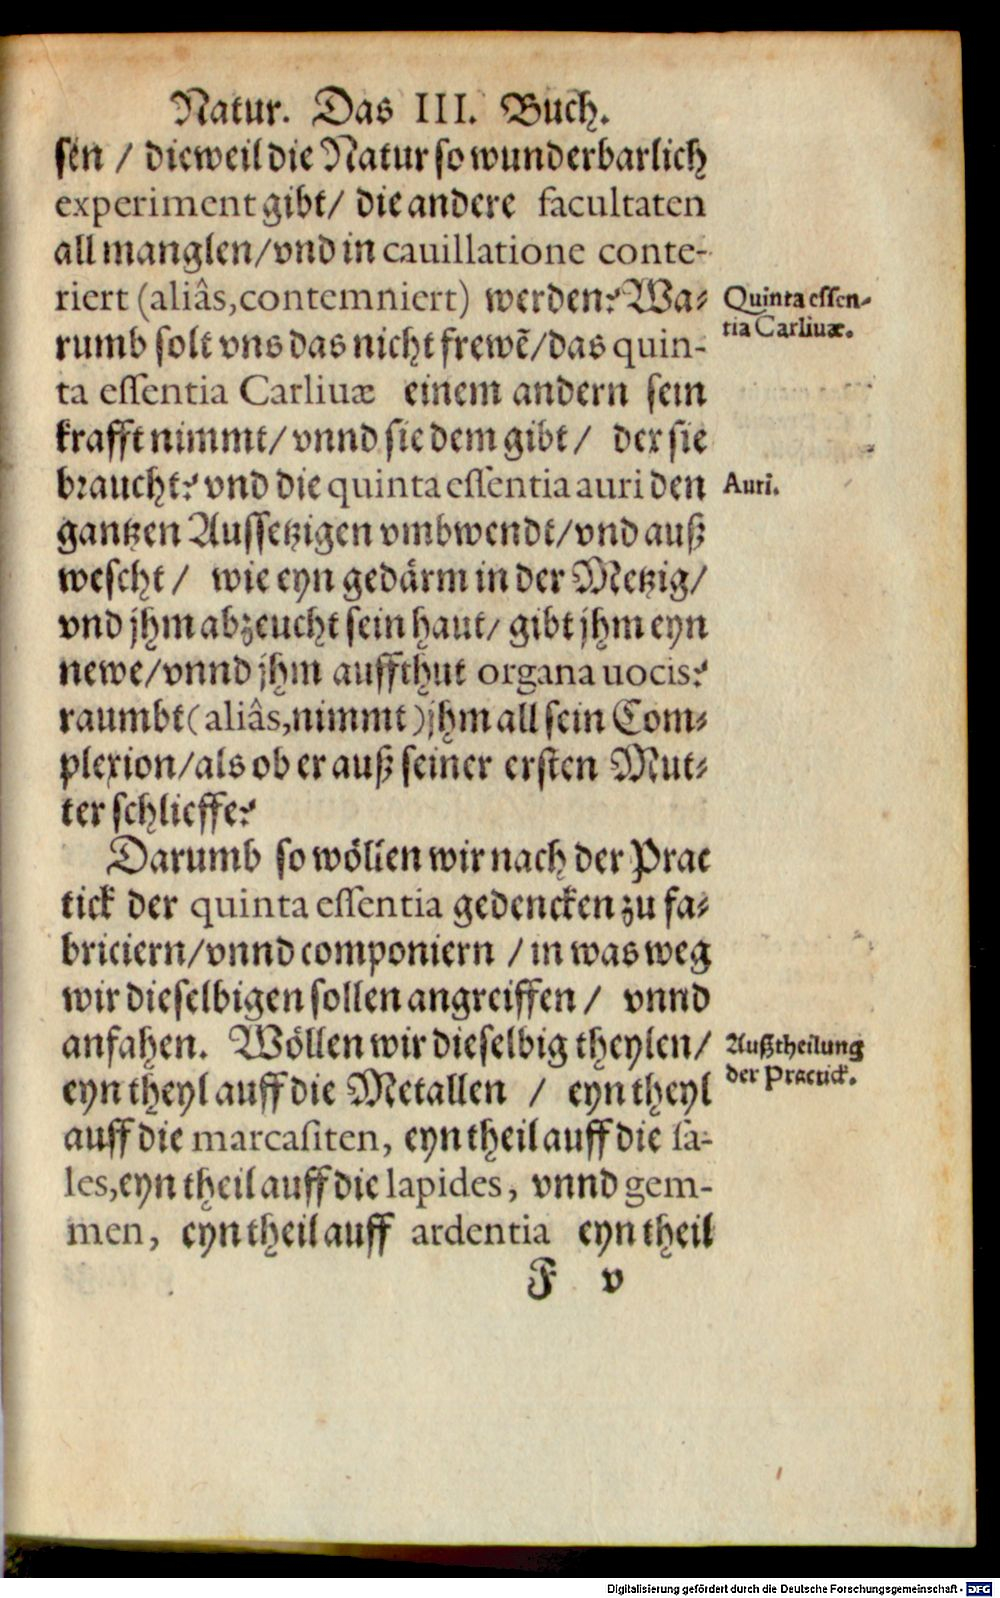 Natur. Das III. Buch.
sen / dieweil die Natur so wunderbarlich
experiment gibt / die andere facultaten
all manglen / vnd in cauillatione conte-
riert (aliâs, contemniert) werden? Wa-
Quinta essen-
tia Carliuæ.
rumb solt vns das nicht frewẽ / das quin-
ta essentia Carliuæ einem andern sein
krafft nimmt / vnnd sie dem gibt / der sie
braucht? vnd die quinta essentia auri den
Auri.
gantzen Aussetzigen vmbwendt / vnd auß
wescht / wie eyn gedärm in der Metzig /
vnd jhm abzeucht sein haut / gibt jhm eyn
newe / vnnd jhm auffthut organa uocis?
raumbt (aliâs, nimmt) jhm all sein Com-
plexion / als ob er auß seiner ersten Mut-
ter schlieffe?
Darumb so wöllen wir nach der Prac
tick der quinta essentia gedencken zu fa-
briciern / vnnd componiern / in was weg
wir dieselbigen sollen angreiffen / vnnd
anfahen. Wöllen wir dieselbig theylen /
Außtheilung
der Practick.
eyn theyl auff die Metallen / eyn theyl
auff die marcasiten, eyn theil auff die sa-
les, eyn theil auff die lapides, vnnd gem-
men, eyn theil auff ardentia eyn theil
F v
Digitalisierung gefördert durch die Deutsche Forschungsgemeinschaft - DFG